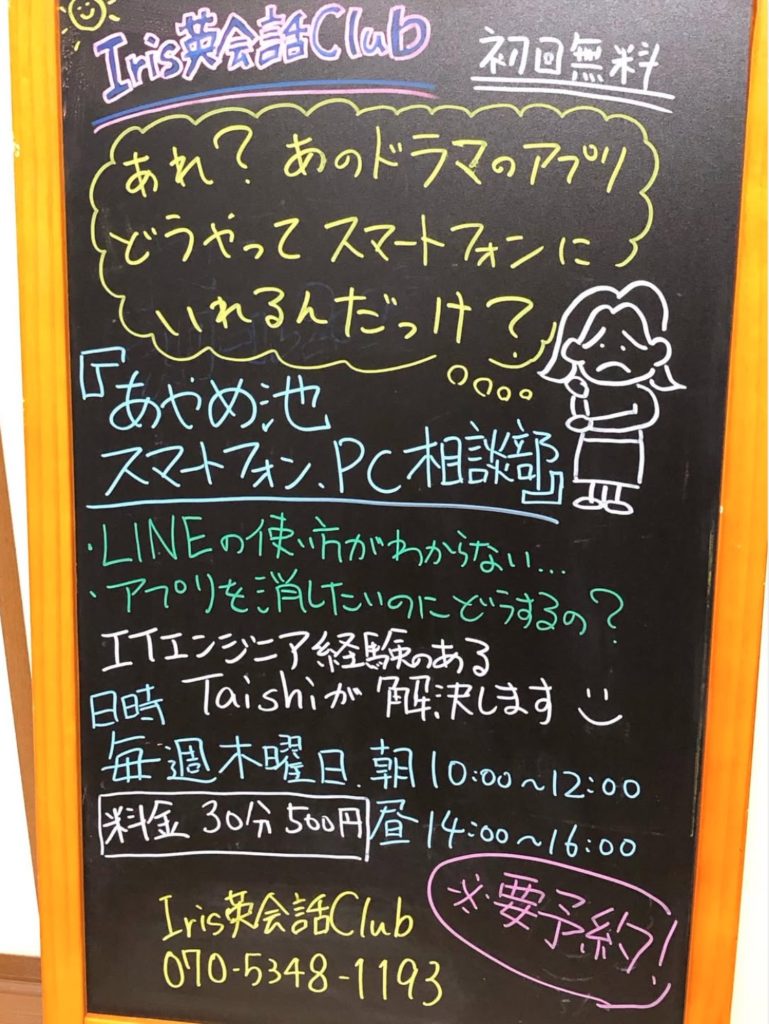 Iris英会話Club
初回無料
あれ？あのドラマのアプリ
どうやってスマートフォンに
いれるんだっけ？
『あやめ池
スマートフォン、PC相談部』
・LINEの使い方がわからない...
・アプリを消したいのにどうするの？
ITエンジニア経験のある
Taishiが解決します
日時
毎週木曜日、朝10:00〜12:00
料金 30分 500円
昼14:00〜16:00
※要予約！
Iris英会話Club
070-5348-1193